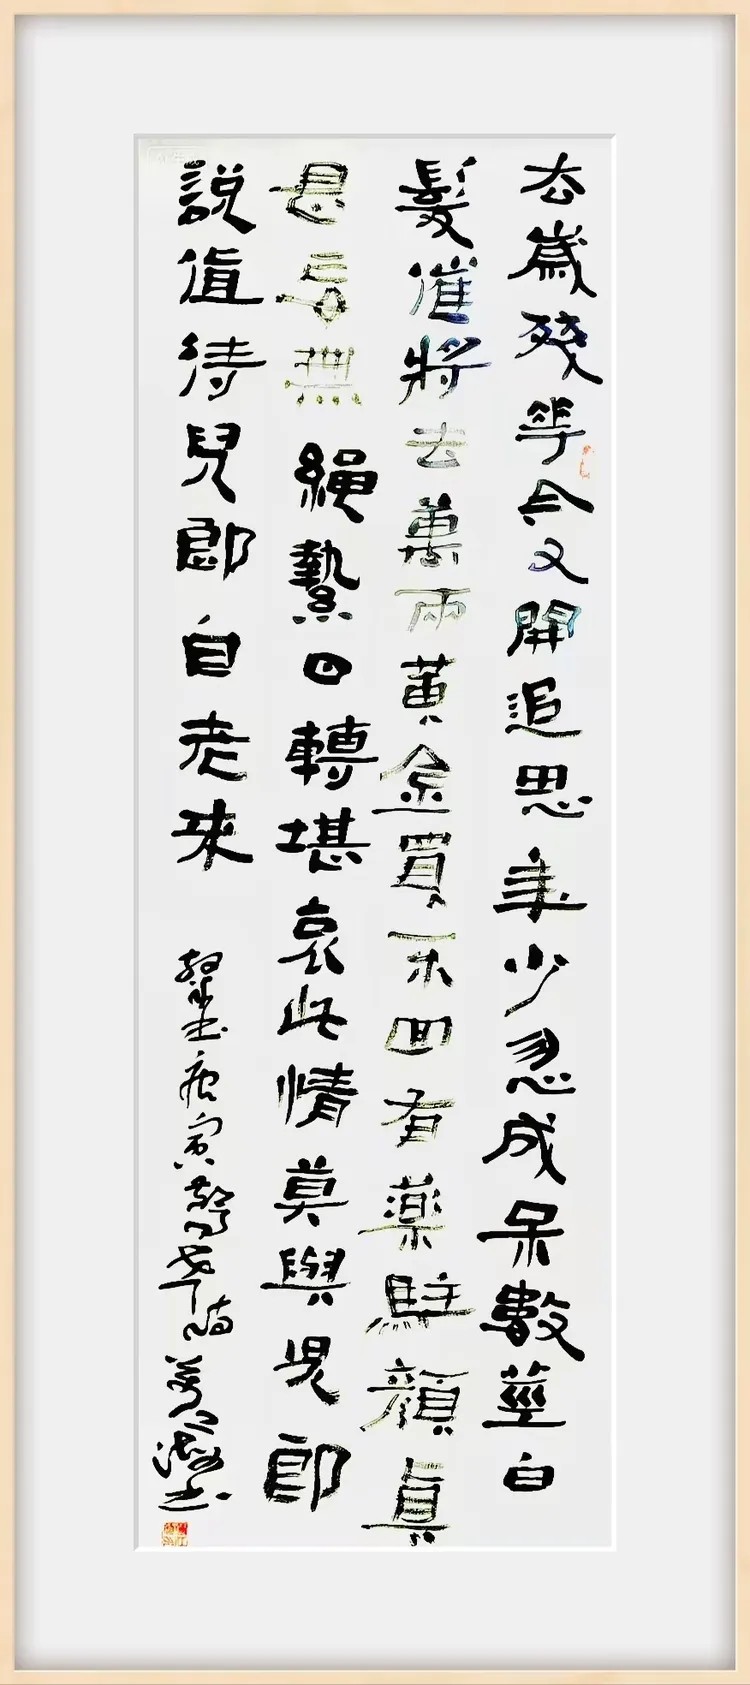 去歲殘華今又開追思年少忽成呆數莖白
髮催將去萬兩黃金買不回有藥駐顏真
是妄無繩繫日轉堪哀此情莫與兒郎
說值待兒郎自老來
書唐寅
书